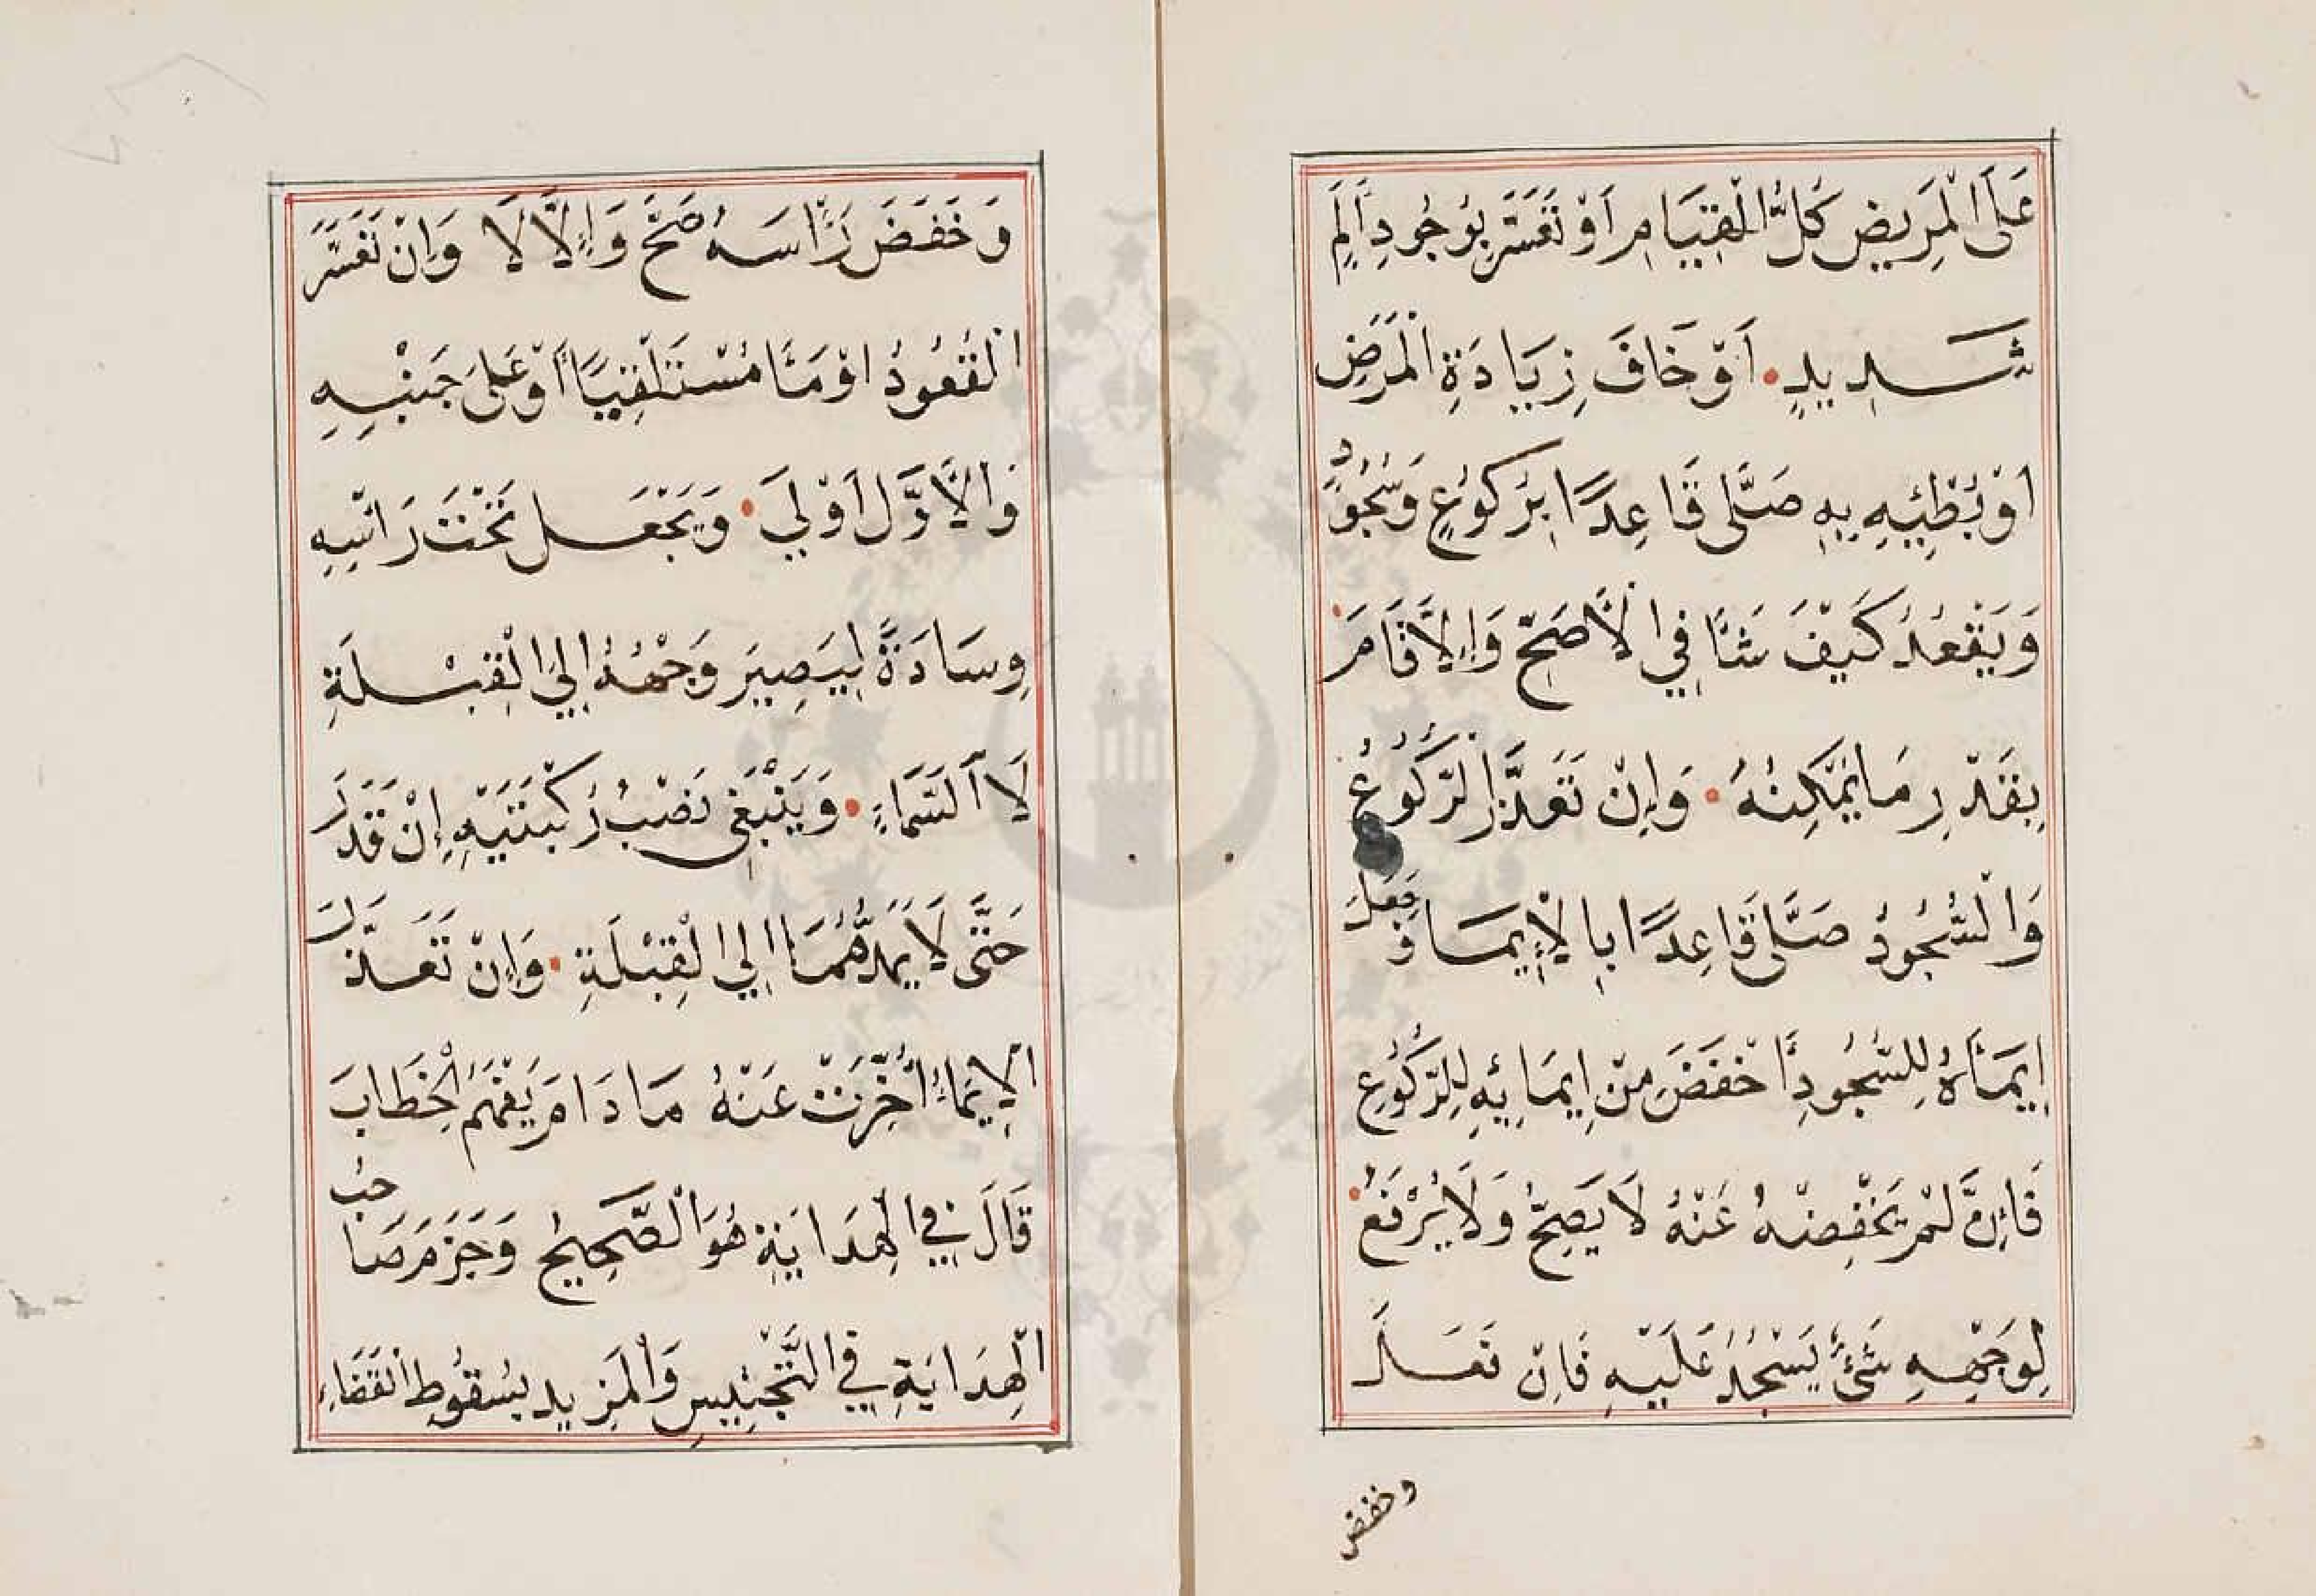 عَلَى الْمَرِيضِ كُلُّ الْقِيَامِ اَوْ تَعَسَّرَ بِوُجُودِ اَلَمٍ
شَدِيدٍ اَوْ خَافَ زِيَادَةَ الْمَرَضِ
اَوْ بُطْئِهِ بِهِ صَلَّى قَاعِدًا بِرُكُوعٍ وَسُجُودٍ
وَيَقْعُدُ كَيْفَ شَأَ فِي الْاَصَحِّ وَاِلَّا قَامَ
بِقَدْرِ مَا يُمْكِنُهُ وَاِنْ تَعَذَّرَ الرُّكُوعُ
وَالسُّجُودُ صَلَّى قَاعِدًا بِالْاِيمَا وَجَعَلَ
اِيمَأَهُ لِلسُّجُودِ اَخْفَضَ مِنْ اِيمَائِهِ لِلرُّكُوعِ
فَاِنْ لَمْ يَخْفِضْهُ عَنْهُ لَا يَصِحُّ وَلَا يُرْفَعُ
لِوَجْهِهِ شَئٌ يَسْجُدُ عَلَيْهِ فَاِنْ فَعَلَ
وخفض
وَخَفَضَ رَأْسَهُ صَحَّ وَاِلَّا لَا وَاِنْ تَعَسَّرَ
الْقُعُودُ اَوْمَأَ مُسْتَلْقِيًا اَوْ عَلَى جَنْبِهِ
وَالْاَوَّلُ اَوْلَى وَيَجْعَل تَحْتَ رَاْسِهِ
وِسَادَةً لِيَصِيرَ وَجْهُهُ اِلَى الْقِبْلَةِ
لَا السَّمَاءِ وَيَنْبَغِي نَصْبُ رُكْبَتَيْهِ اِنْ قَدَرَ
حَتَّى لَا يَمُدَّهُمَا اِلَى الْقِبْلَةِ وَاِنْ تَعَذَّرَ
الْاِيمَاءُ اُخِّرَتْ عَنْهُ مَا دَامَ يَفْهَمُ الْخِطَابَ
قَالَ فِي الْهِدَايَةِ هُوَ الصَّحِيحُ وَجَزَمَ صَاحِبُ
الْهِدَايَةِ فِي التَّجْنِيسِ وَالْمَزِيدِ بِسُقُوطِ الْقَضَاءِ